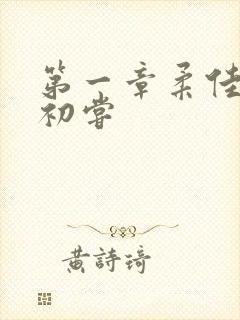 第一章柔佳
初嘗
黃詩琦